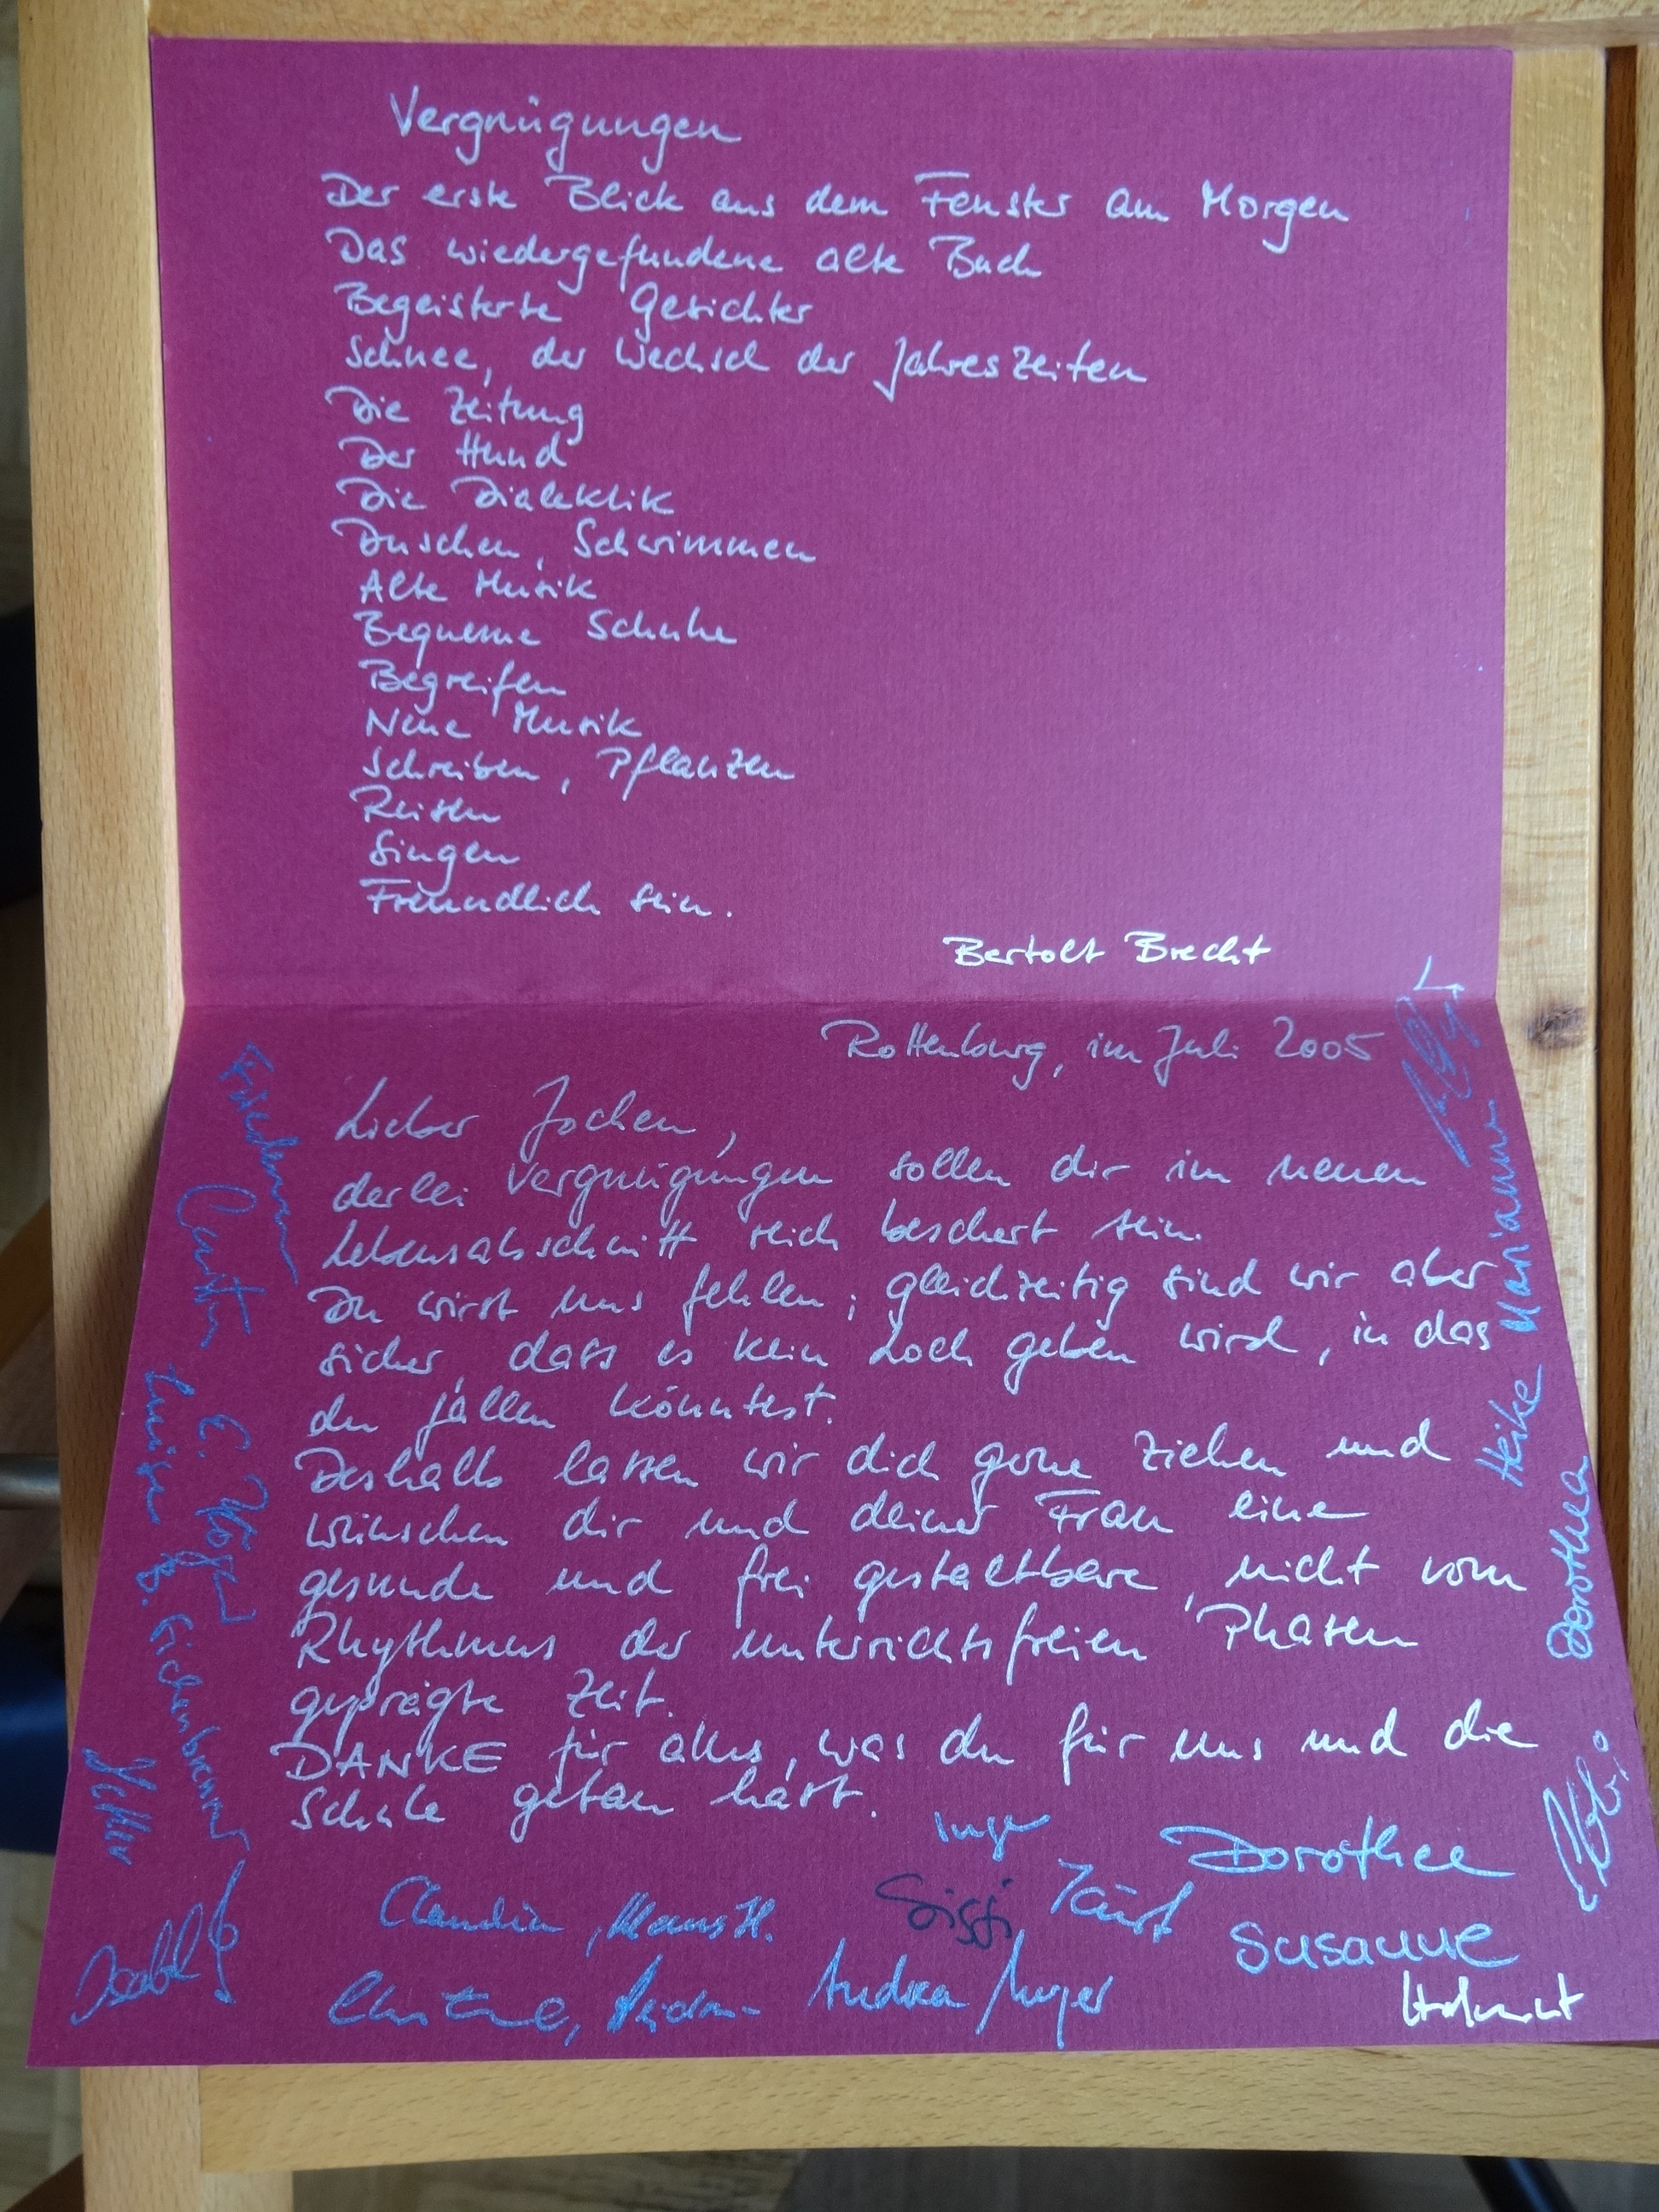 Vergnügungen
Der erste Blick aus dem Fenster am Morgen
Das wiedergefundene alte Buch
Begeisterte Gesichter
Schnee, der Wechsel der Jahreszeiten
Die Zeitung
Der Hund
Die Dialektik
Duschen, Schwimmen
Alte Musik
Bequeme Schuhe
Begreifen
Neue Musik
Schreiben, Pflanzen
Reisen
Singen
Freundlich sein.
Bertolt Brecht
Rottenburg, im Juli 2005
Lieber Jochen,
derlei Vergnügungen sollen dir im neuen
Lebensabschnitt reich beschert sein.
Du wirst uns fehlen; gleichzeitig sind wir aber
sicher dass es kein Loch geben wird, in das
du fallen könntest.
Deshalb lassen wir dich gerne ziehen und
wünschen dir und deiner Frau eine
gesunde und frei gestaltbare, nicht vom
Rhythmus der unterrichtsfreien Phasen
geprägte Zeit.
DANKE für alles, was du für uns und die
Schule getan hast.
Inge
Dorothee
Claudia, Klaus H.
Sissi, Kurt
Susanne
Andrea
Helmut
Marianne
Heike
Dorothea
Friedemann